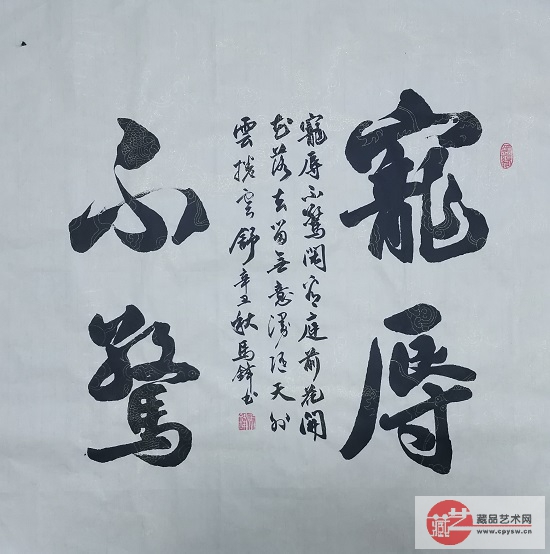 寵辱
不驚
寵辱不驚閑看庭前花開
花落去留無意漫隨天外
雲捲雲舒辛丑秋馬鋒书
藏艺
藏品艺术网
www.cpysw.cn